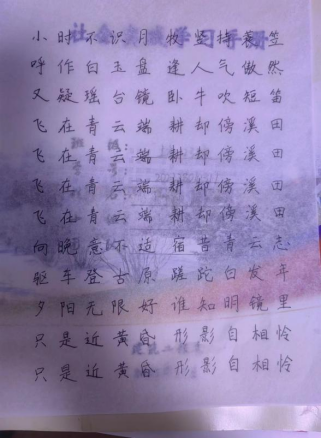 小时不识月 牧竖持蓑笠
呼作白玉盘 逢人气傲然
又疑瑶台镜 卧牛吹短笛
飞在青云端 耕却傍溪田
飞在青云端 耕却傍溪田
飞在青云端 耕却傍溪田
飞在青云端 耕却傍溪田
向晚意不适 宿昔青云志
驱车登古原 蹉跎白发年
夕阳无限好 谁知明镜里
只是近黄昏 形影自相怜
只是近黄昏 形影自相怜